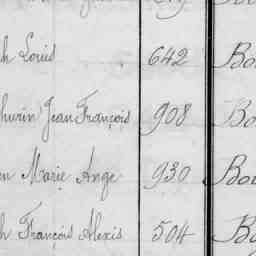 h Louis 642 Bo
hurin Jean François 908 Bo
n Marie Ange 930 Bou
h François Alexis 504 Bo